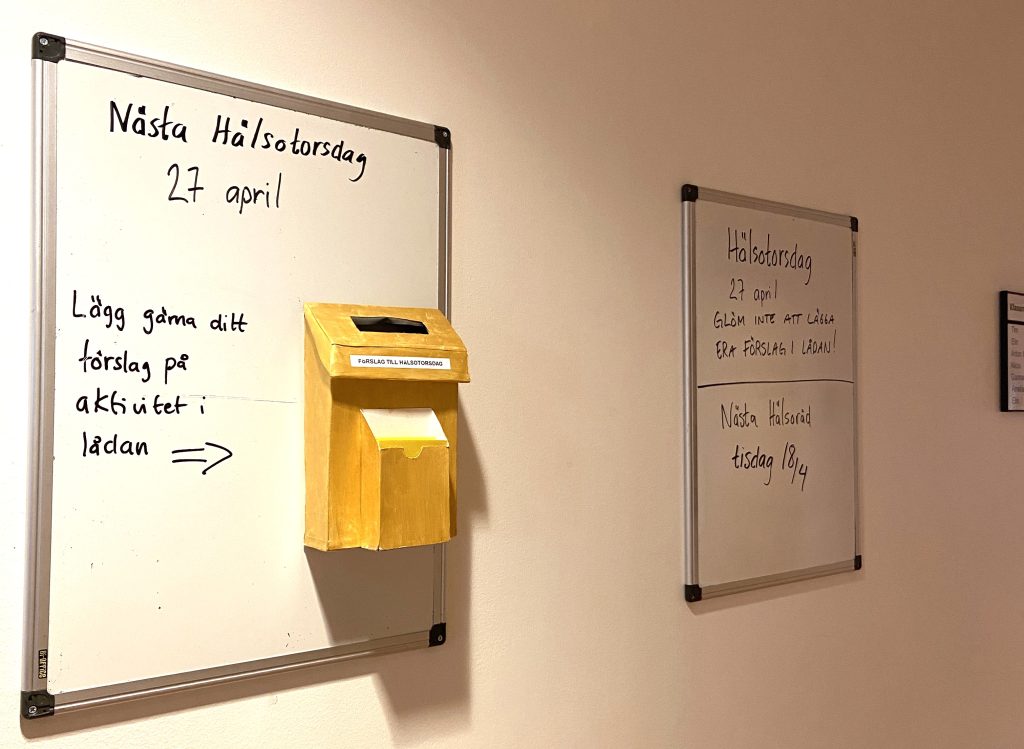 Nästa Hälsotorsdag
27 april
Lägg gärna ditt
förslag på
aktivitet i
lådan
FÖRSLAG TILL HÄLSOTORSDAG
Hälsotorsdag
27 april
GLÖM INTE ATT LÄGGA
ERA FÖRSLAG I LÅDAN!
Nästa Hälsoråd
tisdag 18/4